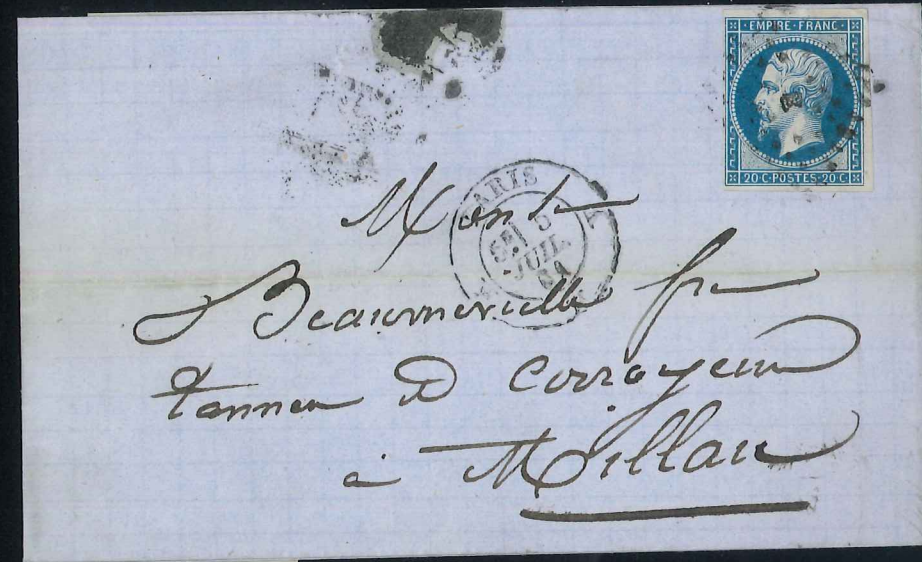 EMPIRE FRANC
20 C POSTES 20 C
PARIS
5
JUIL.
Mons
Beaumevielle fre
tanneur & corroyeur
à Millau